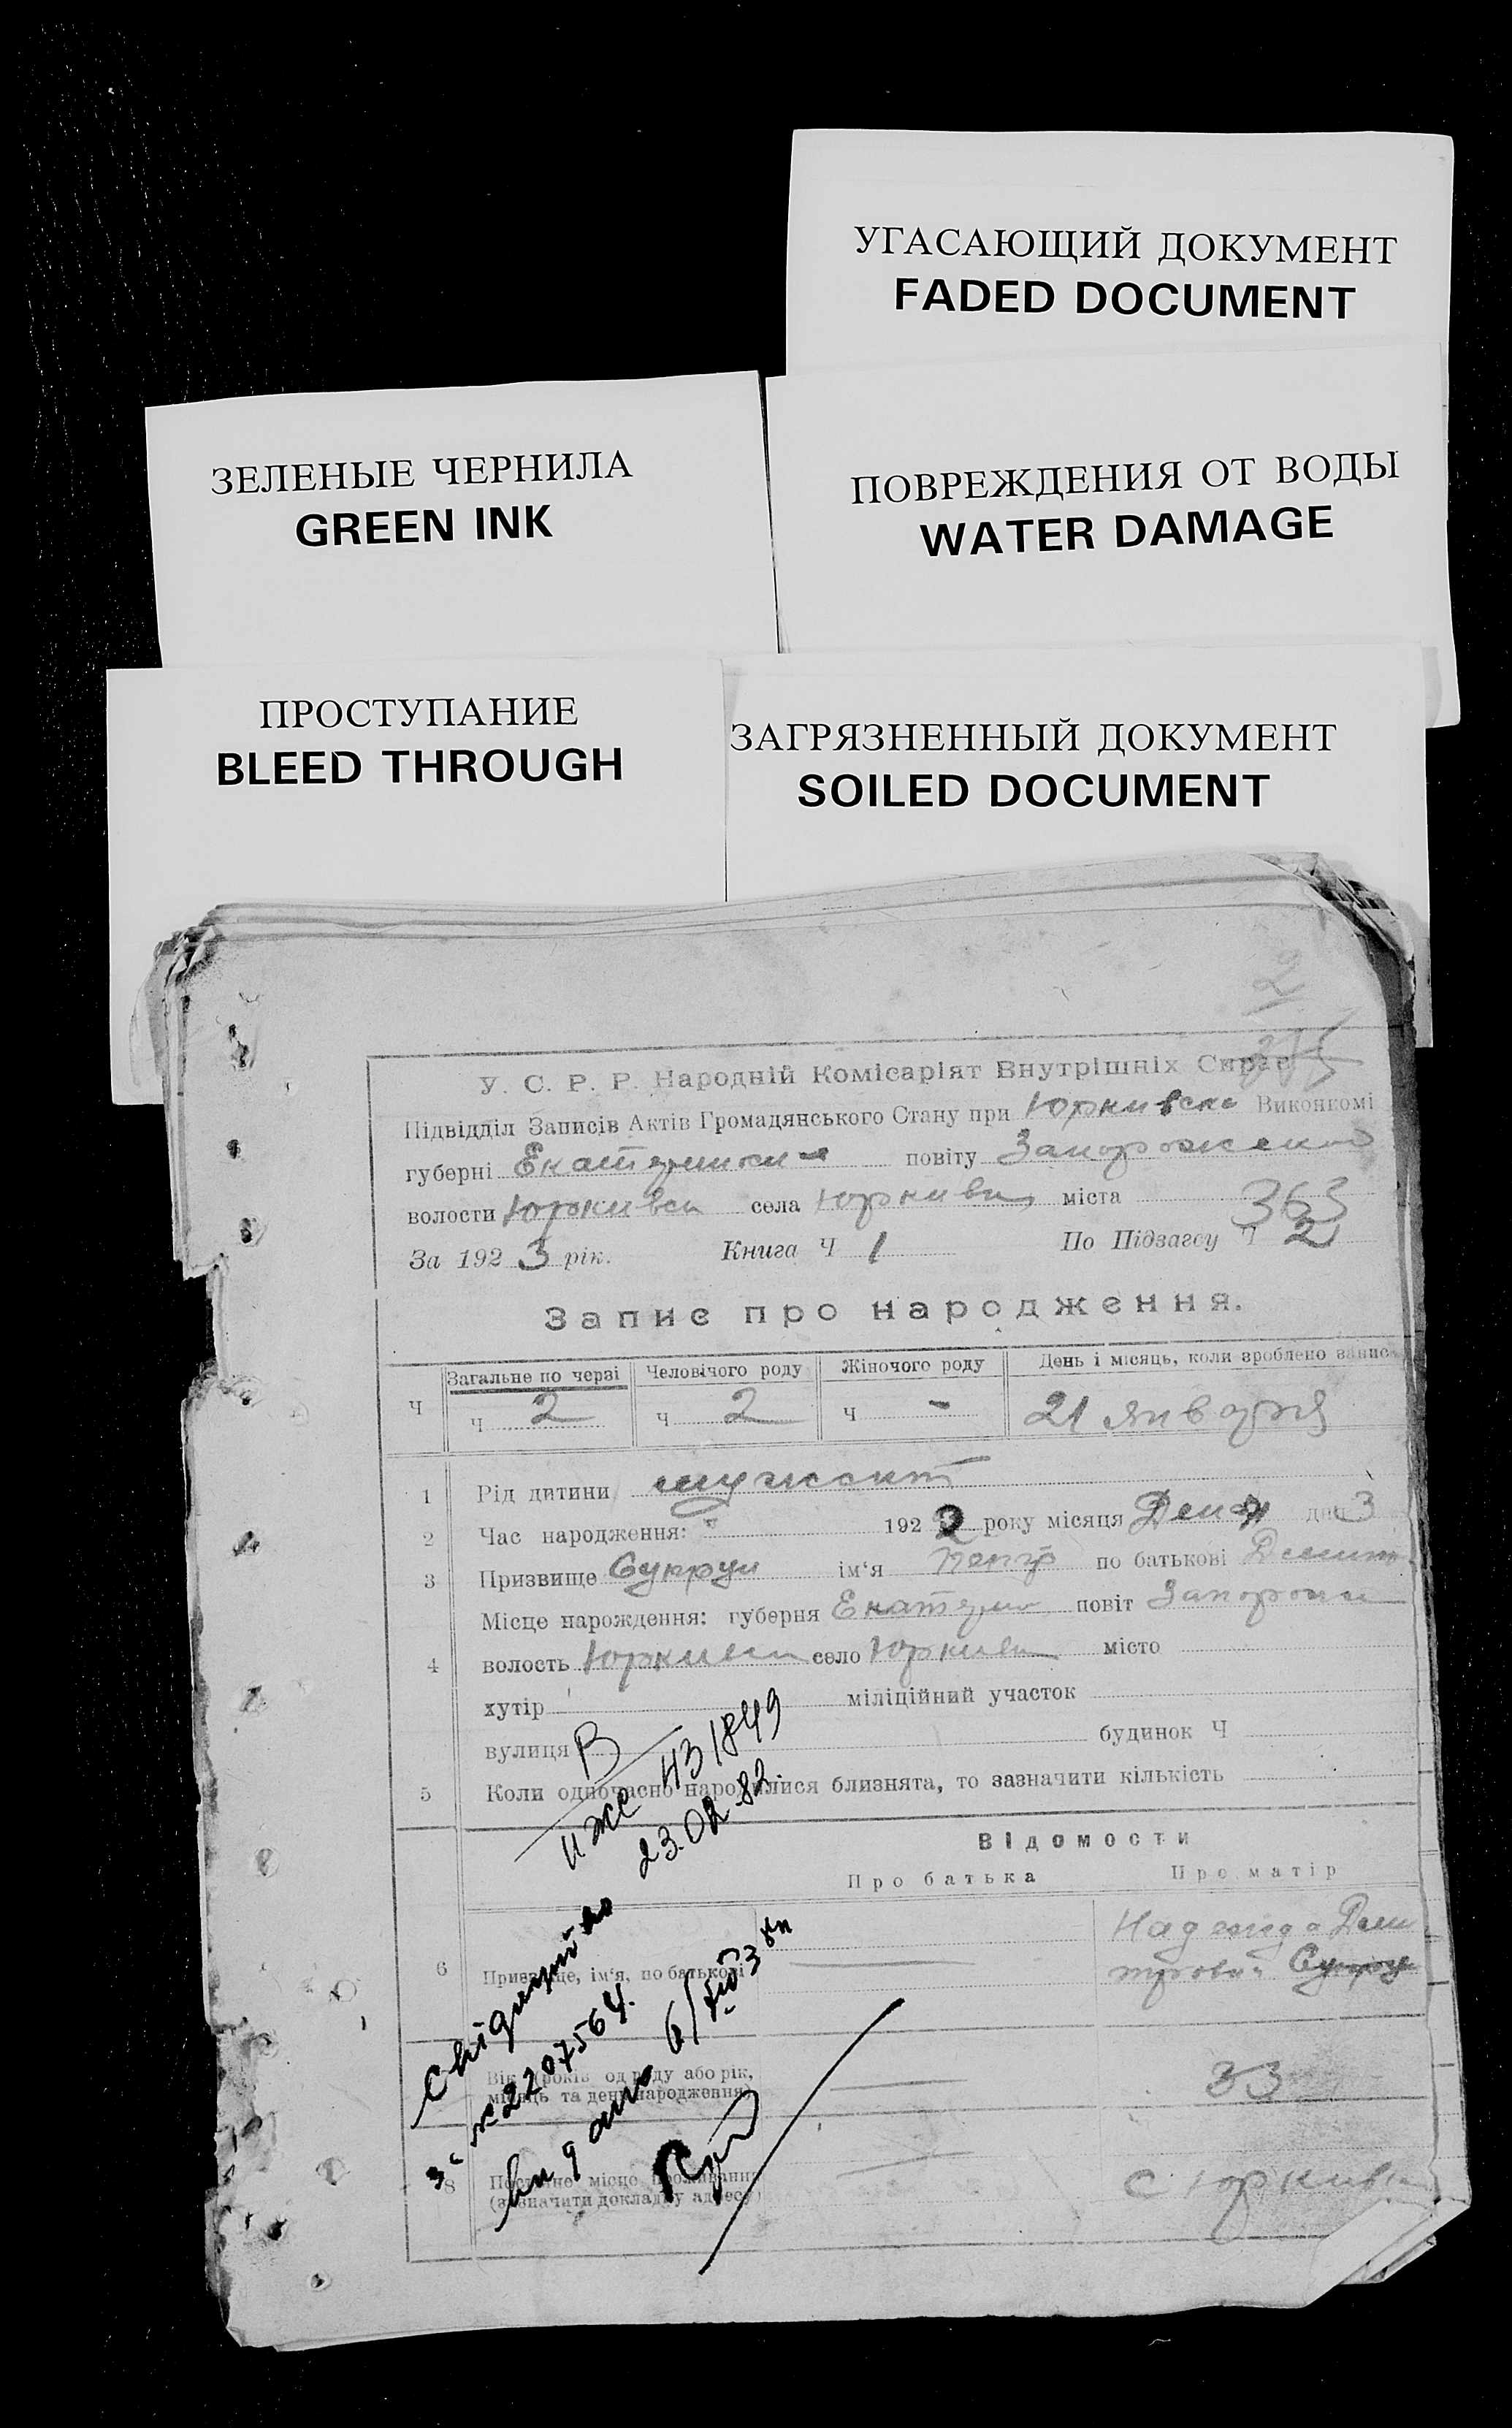 УГАСАЮЩИЙ ДОКУМЕНТ
FADED DOCUMENT
ЗЕЛЕНЫЕ ЧЕРНИЛА
GREEN INK
ПОВРЕЖДЕНИЯ ОТ ВОДЫ
WATER DAMAGE
ПРОСТУПАНИЕ
BLEED THROUGH
ЗАГРЯЗНЕННЫЙ ДОКУМЕНТ
SOILED DOCUMENT
2
У. С. Р. Р. Народній Комісаріят Внутрішніх Справ
Підвідділ Записів Актів Громадянського Стану при Юркивско Виконкомі
губерні повіту
волости Юркивск села Юркивки міста
363
За 192 3 рік. Книга Ч 1 По Підзагсу Ч 2
Запис про народження.
Загальне по черзі Человічого роду Жіночого роду День і місяць, коли зроблено запис
Ч Ч 2 Ч 2 Ч - 21 января
1 Рід дитини
2 Час народження: 192 2 року місяця дня 3
3 Призвище Супрун ім'я Петр по батькові Дмит
Місце нарождення: губерня Екатер повіт Запорож
4 волость Юркивск село Юркивк місто
хутір міліційний участок
вулиця будинок Ч
5 Коли одночасно народилися близнята, то зазначити кількість
В
431849
23.02.82.
Відомости
Про батька Про матір
6 Призвище, ім'я, по батькові Надежда Дми
трова Супрун
№ 2207564.
Вік (років од роду або рік,
місяць та день народження) 33
8 Постійне місце проживання
(зазначити докладну адресу) с Юркивк